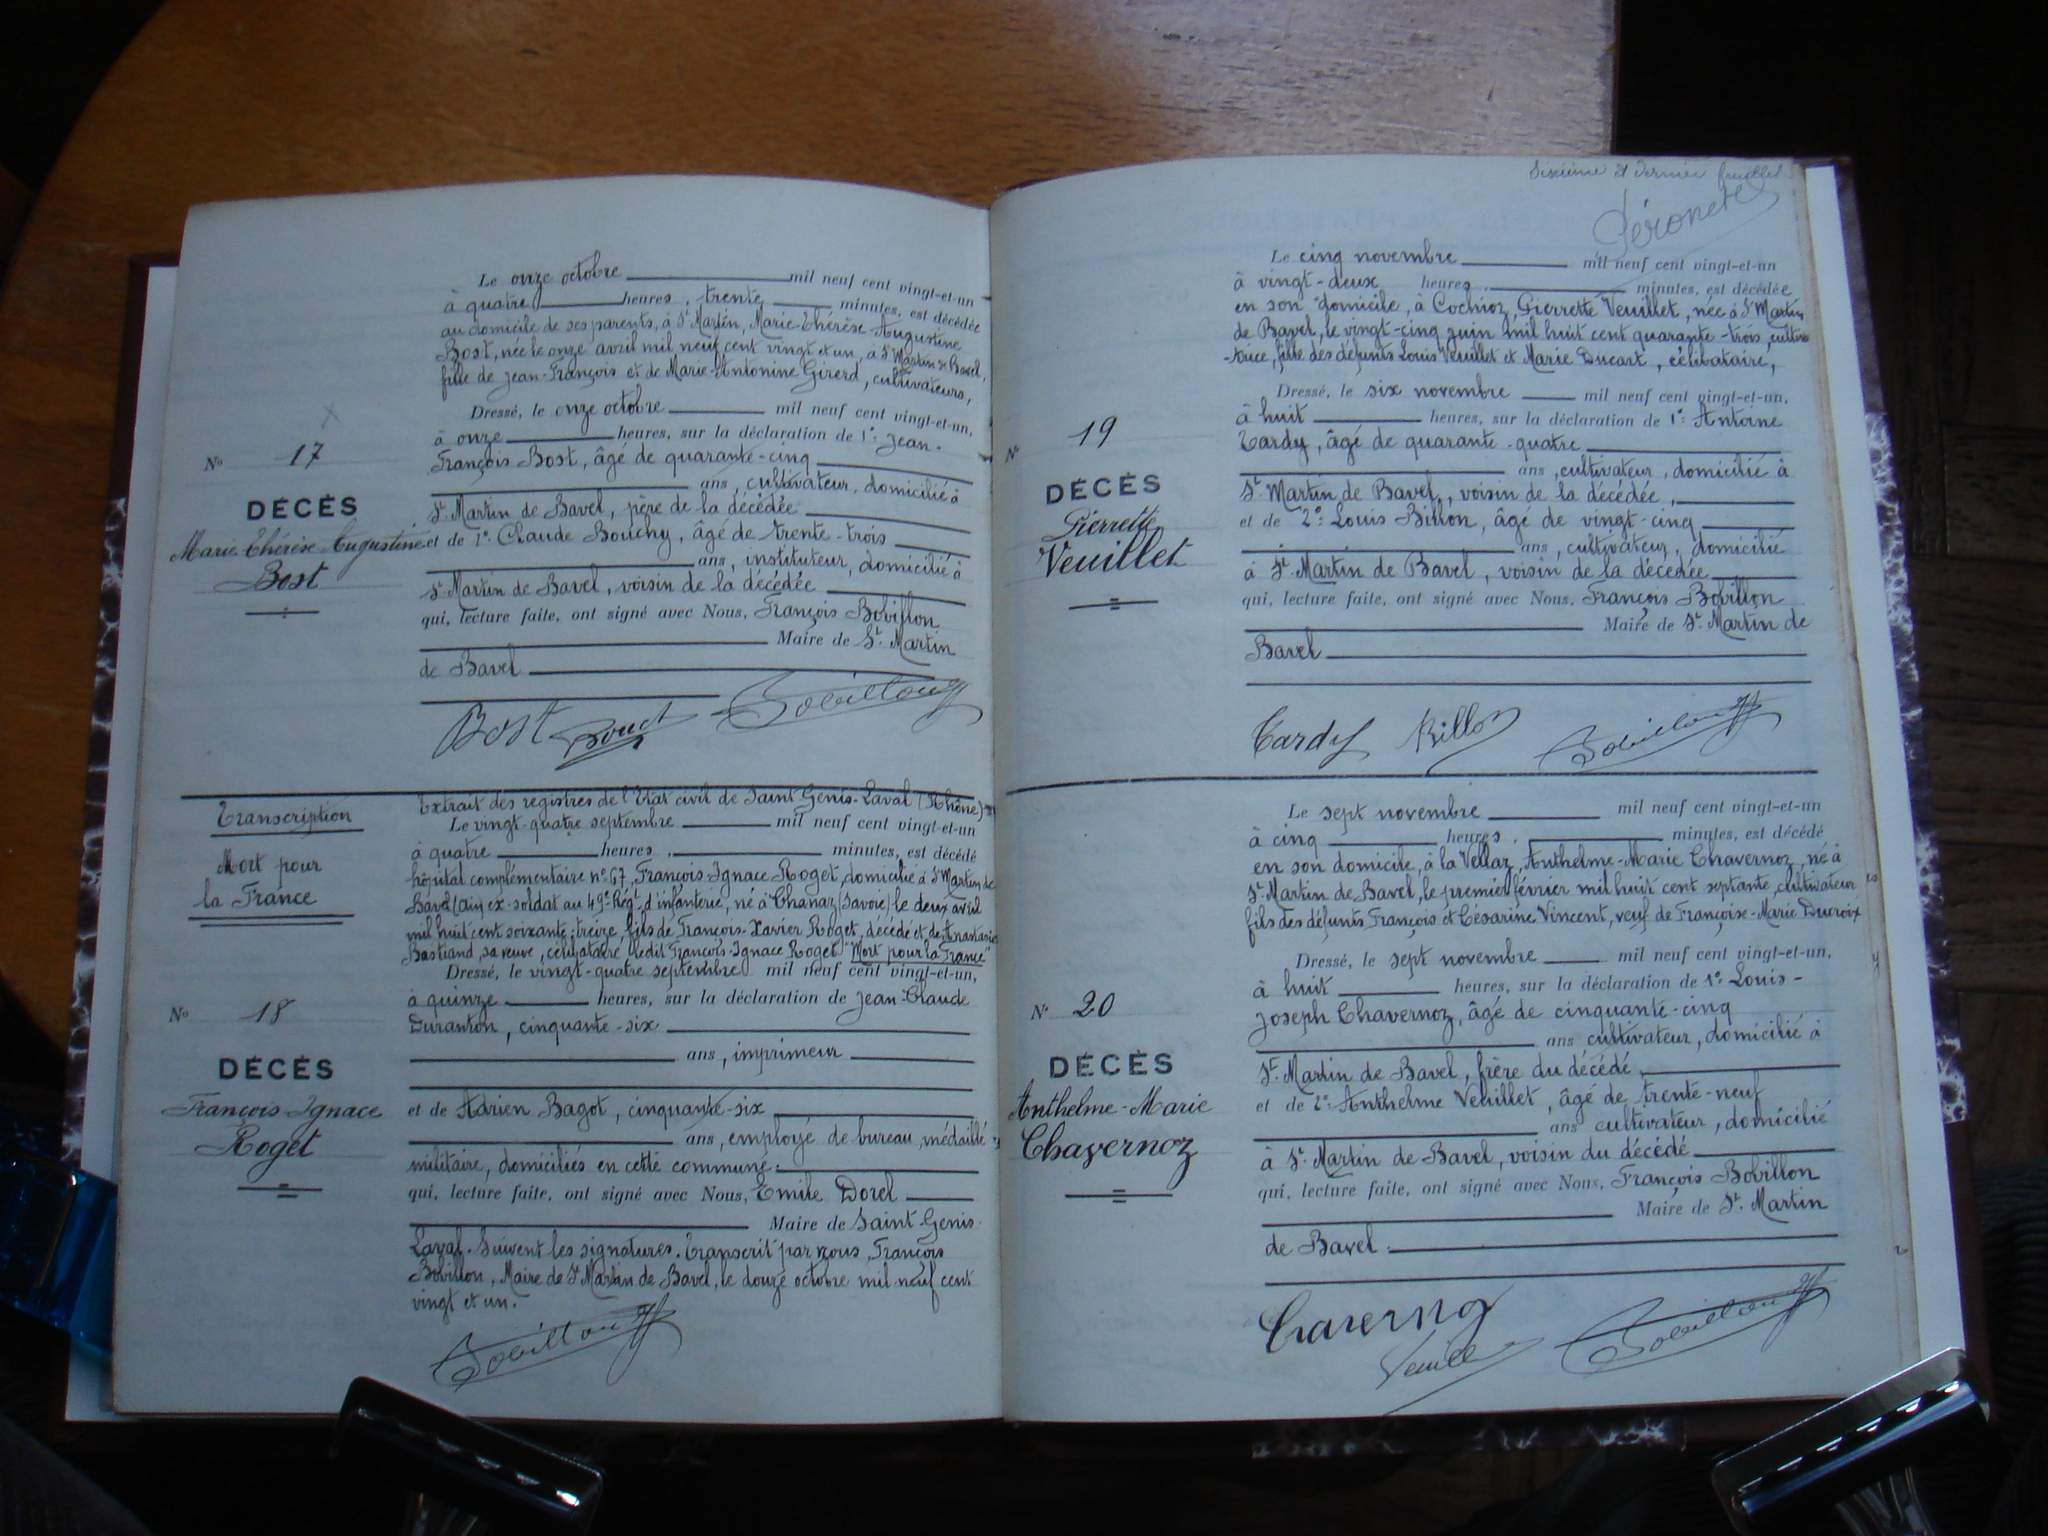 Le onze octobre mil neuf cent vingt-et-un
à quatre heures, trente minutes, est décédée
au domicile de ses parents, à St Martin, Marie-Thérèse-Augustine
Bost, née le onze avril mil neuf cent vingt et un, à St Martin de Bavel,
fille de Jean-François et de Marie-Antonine Girerd, cultivateurs,
Dressé, le onze octobre mil neuf cent vingt-et-un,
à onze heures, sur la déclaration de 1° Jean-
François Bost, âgé de quarante-cinq
ans, cultivateur, domicilié à
St. Martin de Bavel, père de la décédée
et de 2° Claude Bouchy, âgé de trente-trois
ans, instituteur, domicilié à
St. Martin de Bavel, voisin de la décédée
qui, lecture faite, ont signé avec Nous, François Bobillon
Maire de St. Martin
de Bavel
No 17
DÉCÈS
Marie-Thérèse-Augustine
Bost
Bost Bouch Bobillon
Transcription
Mort pour
la France
Extrait des registres de l'Etat civil de Saint Genis-Laval (Rhône)
Le vingt-quatre septembre mil neuf cent vingt-et-un
à quatre heures, minutes, est décédé
hôpital complémentaire n° 67, François Ignace Roget, domicilié à St Martin de
Bavel (Ain) ex-soldat au 49e Régt d'infanterie, né à Chanaz (Savoie) le deux avril
mil huit cent soixante-treize, fils de François-Xavier Roget, décédé et de Anastasie
Bastiand, sa veuve, célibataire. Ledit François-Ignace Roget "Mort pour la France"
Dressé, le vingt-quatre septembre mil neuf cent vingt-et-un,
à quinze heures, sur la déclaration de Jean-Claude
Duranton, cinquante-six
ans, imprimeur
et de Adrien Bagot, cinquante-six
ans, employé de bureau, médaillé
militaire, domiciliés en cette commune.
qui, lecture faite, ont signé avec Nous, Emile Dorel
Maire de Saint Genis-
Laval. Suivent les signatures. Transcrit par nous, François
Bobillon, Maire de St Martin de Bavel, le douze octobre mil neuf cent
vingt et un.
No 18
DÉCÈS
François Ignace
Roget
Bobillon
Sixième et dernier feuillet
Péronet
Le cinq novembre mil neuf cent vingt-et-un
à vingt-deux heures, minutes, est décédée
en son domicile, à Cochioz, Pierrette Veuillet, née à St Martin
de Bavel, le vingt-cinq juin mil huit cent quarante-trois, cultiva
-trice, fille des défunts Louis Veuillet et Marie Ducart, célibataire,
Dressé, le six novembre mil neuf cent vingt-et-un,
à huit heures, sur la déclaration de 1° Antoine
Tardy, âgé de quarante-quatre
ans, cultivateur, domicilié à
St. Martin de Bavel, voisin de la décédée,
et de 2° Louis Billon, âgé de vingt-cinq
ans, cultivateur, domicilié
à St. Martin de Bavel, voisin de la décédée
qui, lecture faite, ont signé avec Nous, François Bobillon
Maire de St. Martin de
Bavel
No 19
DÉCÈS
Pierrette
Veuillet
Tardy Billon Bobillon
Le sept novembre mil neuf cent vingt-et-un
à cinq heures, minutes, est décédé
en son domicile, à la Vellaz, Anthelme-Marie Chavernoz, né à
St. Martin de Bavel, le premier février mil huit cent septante, cultivateur
fils des défunts François et Césarine Vincent, veuf de Françoise-Marie Ducroix
Dressé, le sept novembre mil neuf cent vingt-et-un,
à huit heures, sur la déclaration de 1° Louis-
Joseph Chavernoz, âgé de cinquante-cinq
ans cultivateur, domicilié à
St. Martin de Bavel, frère du décédé,
et de 2° Anthelme Veuillet, âgé de trente-neuf
ans cultivateur, domicilié
à St. Martin de Bavel, voisin du décédé
qui, lecture faite, ont signé avec Nous, François Bobillon
Maire de St. Martin
de Bavel.
No 20
DÉCÈS
Anthelme-Marie
Chavernoz
Chavernoz
Veuill Bobillon